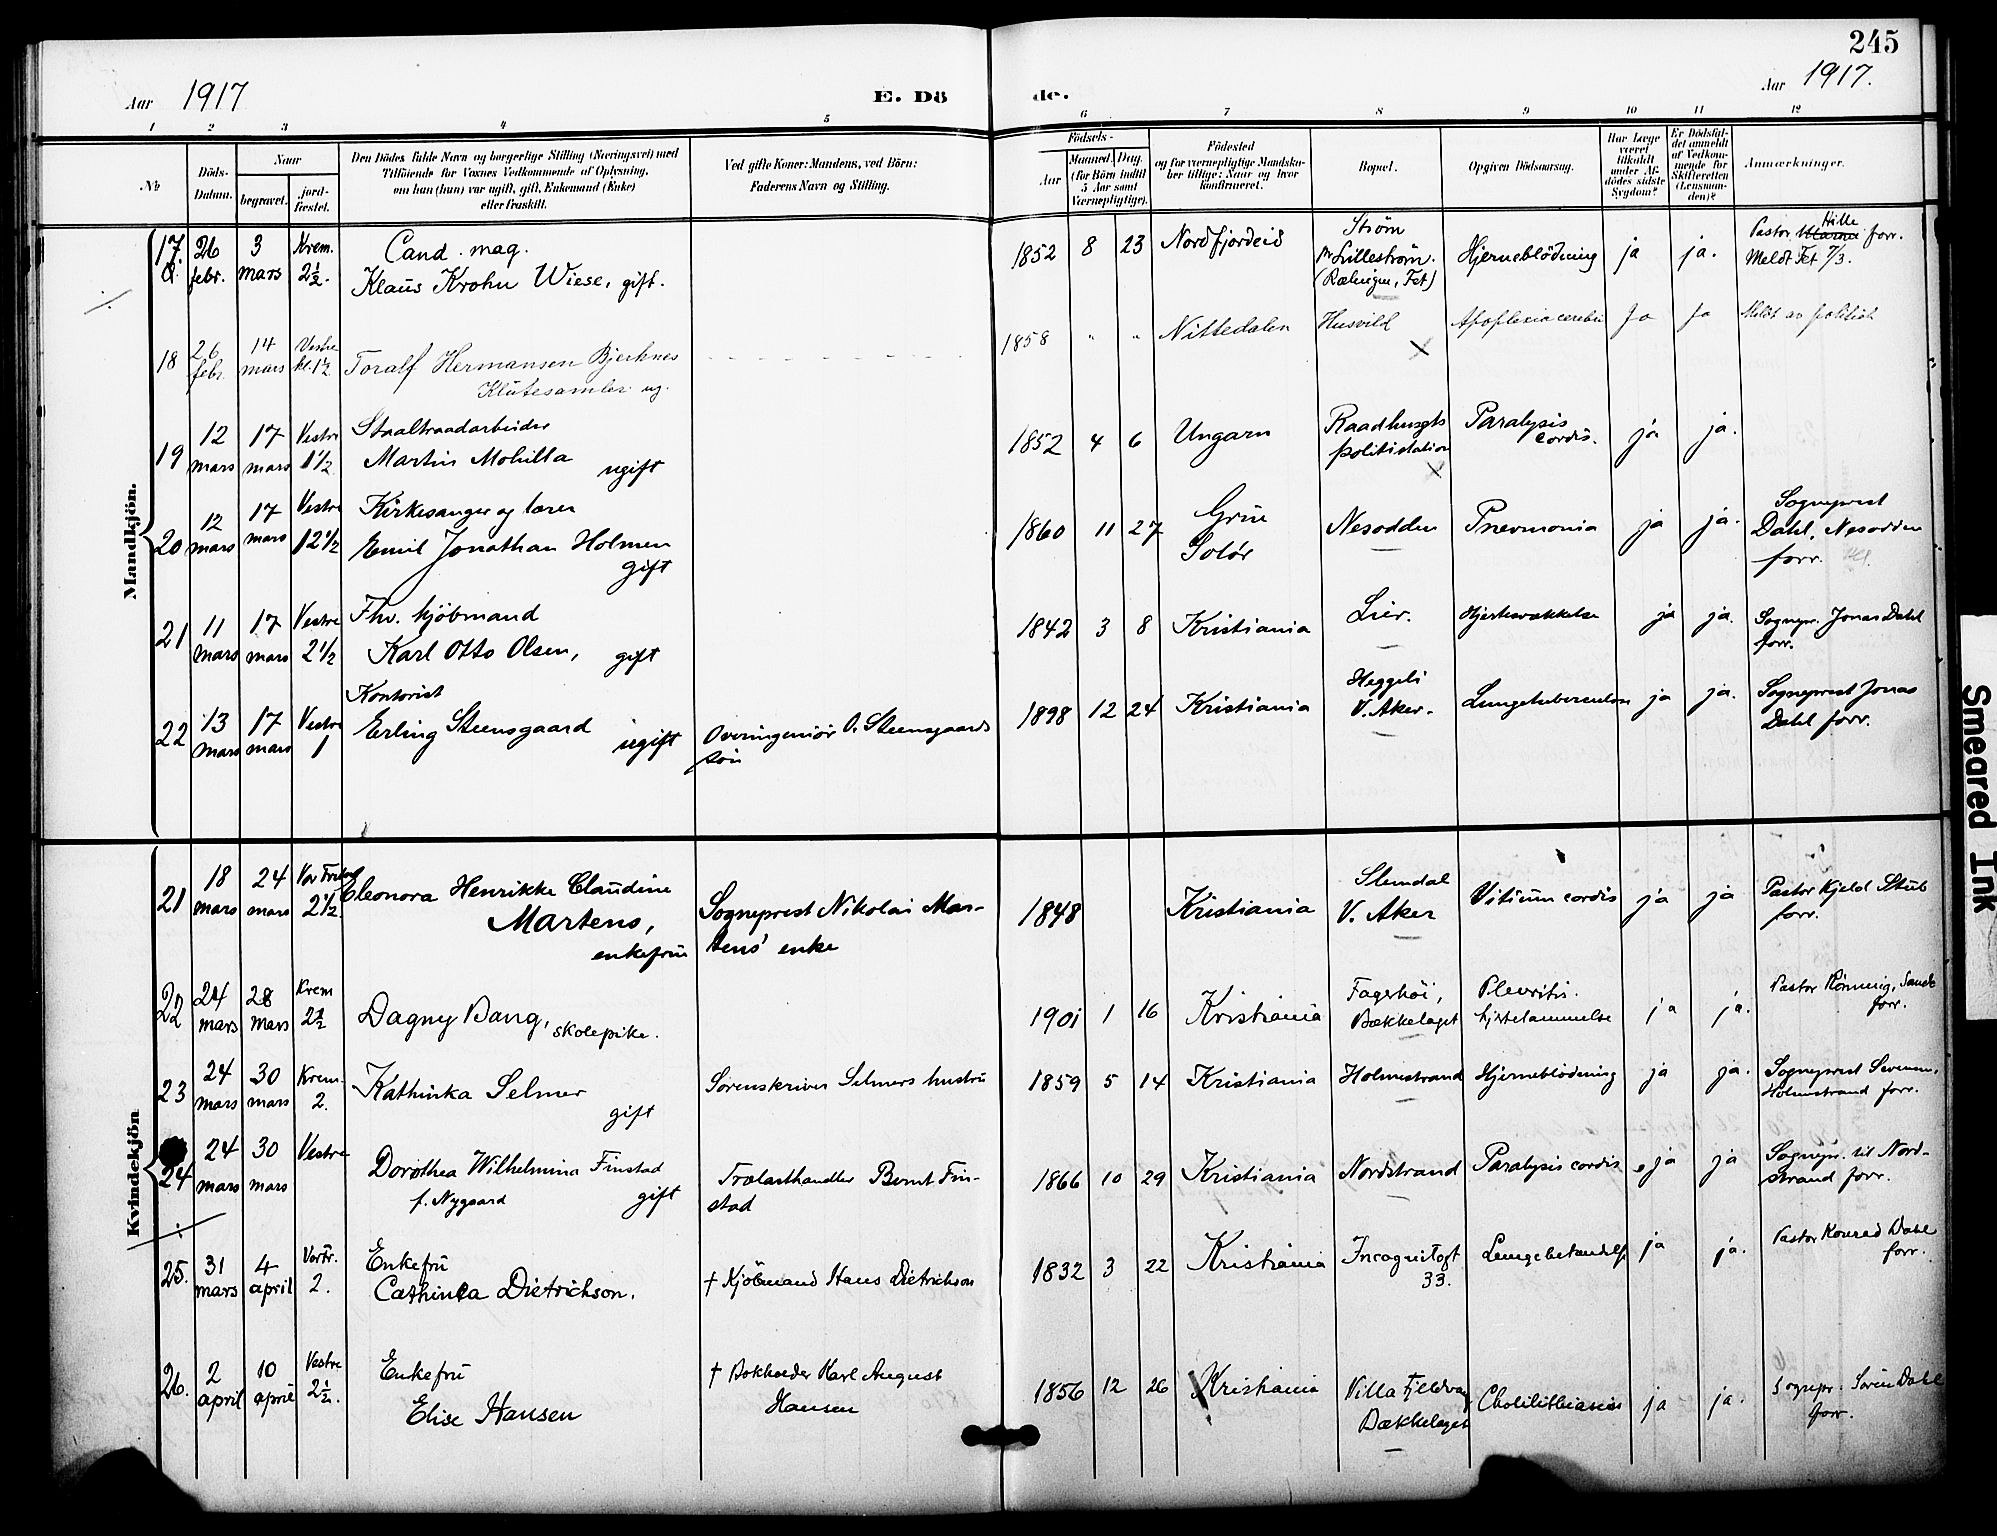 245
Aar 1917
E. Dö de.
Aar 1917.
1 2 3 4 5 6 7 8 9 10 11 12
No
Döds-
Datum.
Naar
begravet.
jord-
fæstet.
Den Dödes fulde Navn og borgerlige Stilling (Næringsvei) med
Tilföiende for Voxnes Vedkommende af Oplysning,
om han (hun) var ugift, gift, Enkemand (Enke)
eller fraskilt.
Ved gifte Koner: Mandens, ved Börn:
Faderens Navn og Stilling.
Födsels-
Aar
Maaned. Dag.
(for Börn indtil
5 Aar samt
Værnepligtige).
Födested
og for værnepligtige Mandska-
ber tillige: Naar og hvor
konfirmeret.
Bopæl.
Opgiven Dödsaarsag.
Har Læge
været
tilkaldt
under Af-
dödes sidste
Sygdom?
Er Dödsfal-
det anmeldt
af Vedkom-
mende for
Skifteretten
(Lensman-
den)?
Anmærkninger.
Mandkjön.
17
26
febr.
3
mars
Krem.
2½.
Cand. mag.
Klaus Krohn Wiese, gift.
1852 8 23
Nordfjordeid
Strøm
pr Lillestrøm.
(Rælingen, Fet)
Hjerneblödning
ja
ja.
Hille
Pastor forr.
Meldt Fet 7/3.
18
26
febr.
14
mars
Vestre
kl. 1½
Toralf Hermansen Bjerknes
Klutesamler ug.
1858 " "
Nittedalen
Husvild
Apoplexia cerebri
Ja
Ja
Meldt av politiet
19
12
mars
17
mars
Vestre
1½
Staaltraadarbeider
Martin Mohilla
ugift
1852 4 6
Ungarn
Raadhusgts
politistation
Paralysis
cordis.
ja
ja.
20
12
mars
17
mars
Vestre
12½
Kirkesanger og lærer
Emil Jonathan Holmen
gift
1860 11 27
Grue
Solør
Nesodden
Pnevmonia
ja
ja.
Sogneprest
Dahl, Nesodden
forr.
21
11
mars
17
mars
Vestre
2½
Fhv. kjöbmand
Karl Otto Olsen, gift
1842 3 8
Kristiania
Lier.
Hjertesvækkelse
ja
ja.
Sognepr. Jonas Dahl
forr.
22
13
mars
17
mars
Vestre
1
Kontorist
Erling Steensgaard
ugift
Overingeniör O. Steensgaards
sön
1898 12 24
Kristiania
Heggeli
V. Aker.
Lungetuberculose
ja
ja.
Sogneprest Jonas
Dahl forr.
Kvindekjön
21
18
mars
24
mars
Vor Frelsers
2½
Eleonora Henrikke Claudine
Martens,
enkefru
Sogneprest Nikolai Mar-
tens' enke
1848
Kristiania
Slemdal
V. Aker
Vitium cordis
ja
ja
Pastor Kjeld Stub
forr.
22
24
mars
28
mars
Krem
2½
Dagny Bang, skolepike.
1901 1 16
Kristiania
Fagerhöi,
Bækkelaget
Plevritis.
hjertelammelse
ja
ja.
Pastor Rönneig,
forr.
23
24
mars
30
mars
Krem.
2.
Kathinka Selmer
gift
Sorenskriver Selmers hustru
1859 5 14
Kristiania
Holmestrand
Hjerneblödning
ja
ja.
Sogneprest
Holmestrand forr.
24
24
mars
30
mars
Vestre
Dorothea Wilhelmina Finstad
f. Nygaard gift
Trælasthandler Bernt Fin-
stad
1866 10 29
Kristiania
Nordstrand
Paralysis cordis
ja
ja
Sognepr. til Nord-
strand forr.
25.
31
mars
4
april
Vor Fr.
2.
Enkefru
Cathinca Dietrichson.
† Kjöbmand Hans Dietrichson
1832 3 22
Kristiania
Incognitogt
33.
Lungebetændelse
ja
ja.
Pastor Konrad Dahl
forr.
26.
2
april
10
april
Vestre
2½.
Enkefru
Elise Hansen
† Bokholder Karl August
Hansen
1856 12 26
Kristiania
Villa Fjeldvang
Bækkelaget
Cholelithiasis
ja
ja.
Sognepr. Sören Dahl
forr.
Smeared Ink